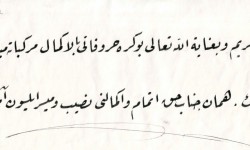 ريم وبعناية الله تعالى بوكره حروفاتى بالاكمال مركباته
ث. همان جناب حق اتمام واكمالنى نصيب وميسر ايليون آ